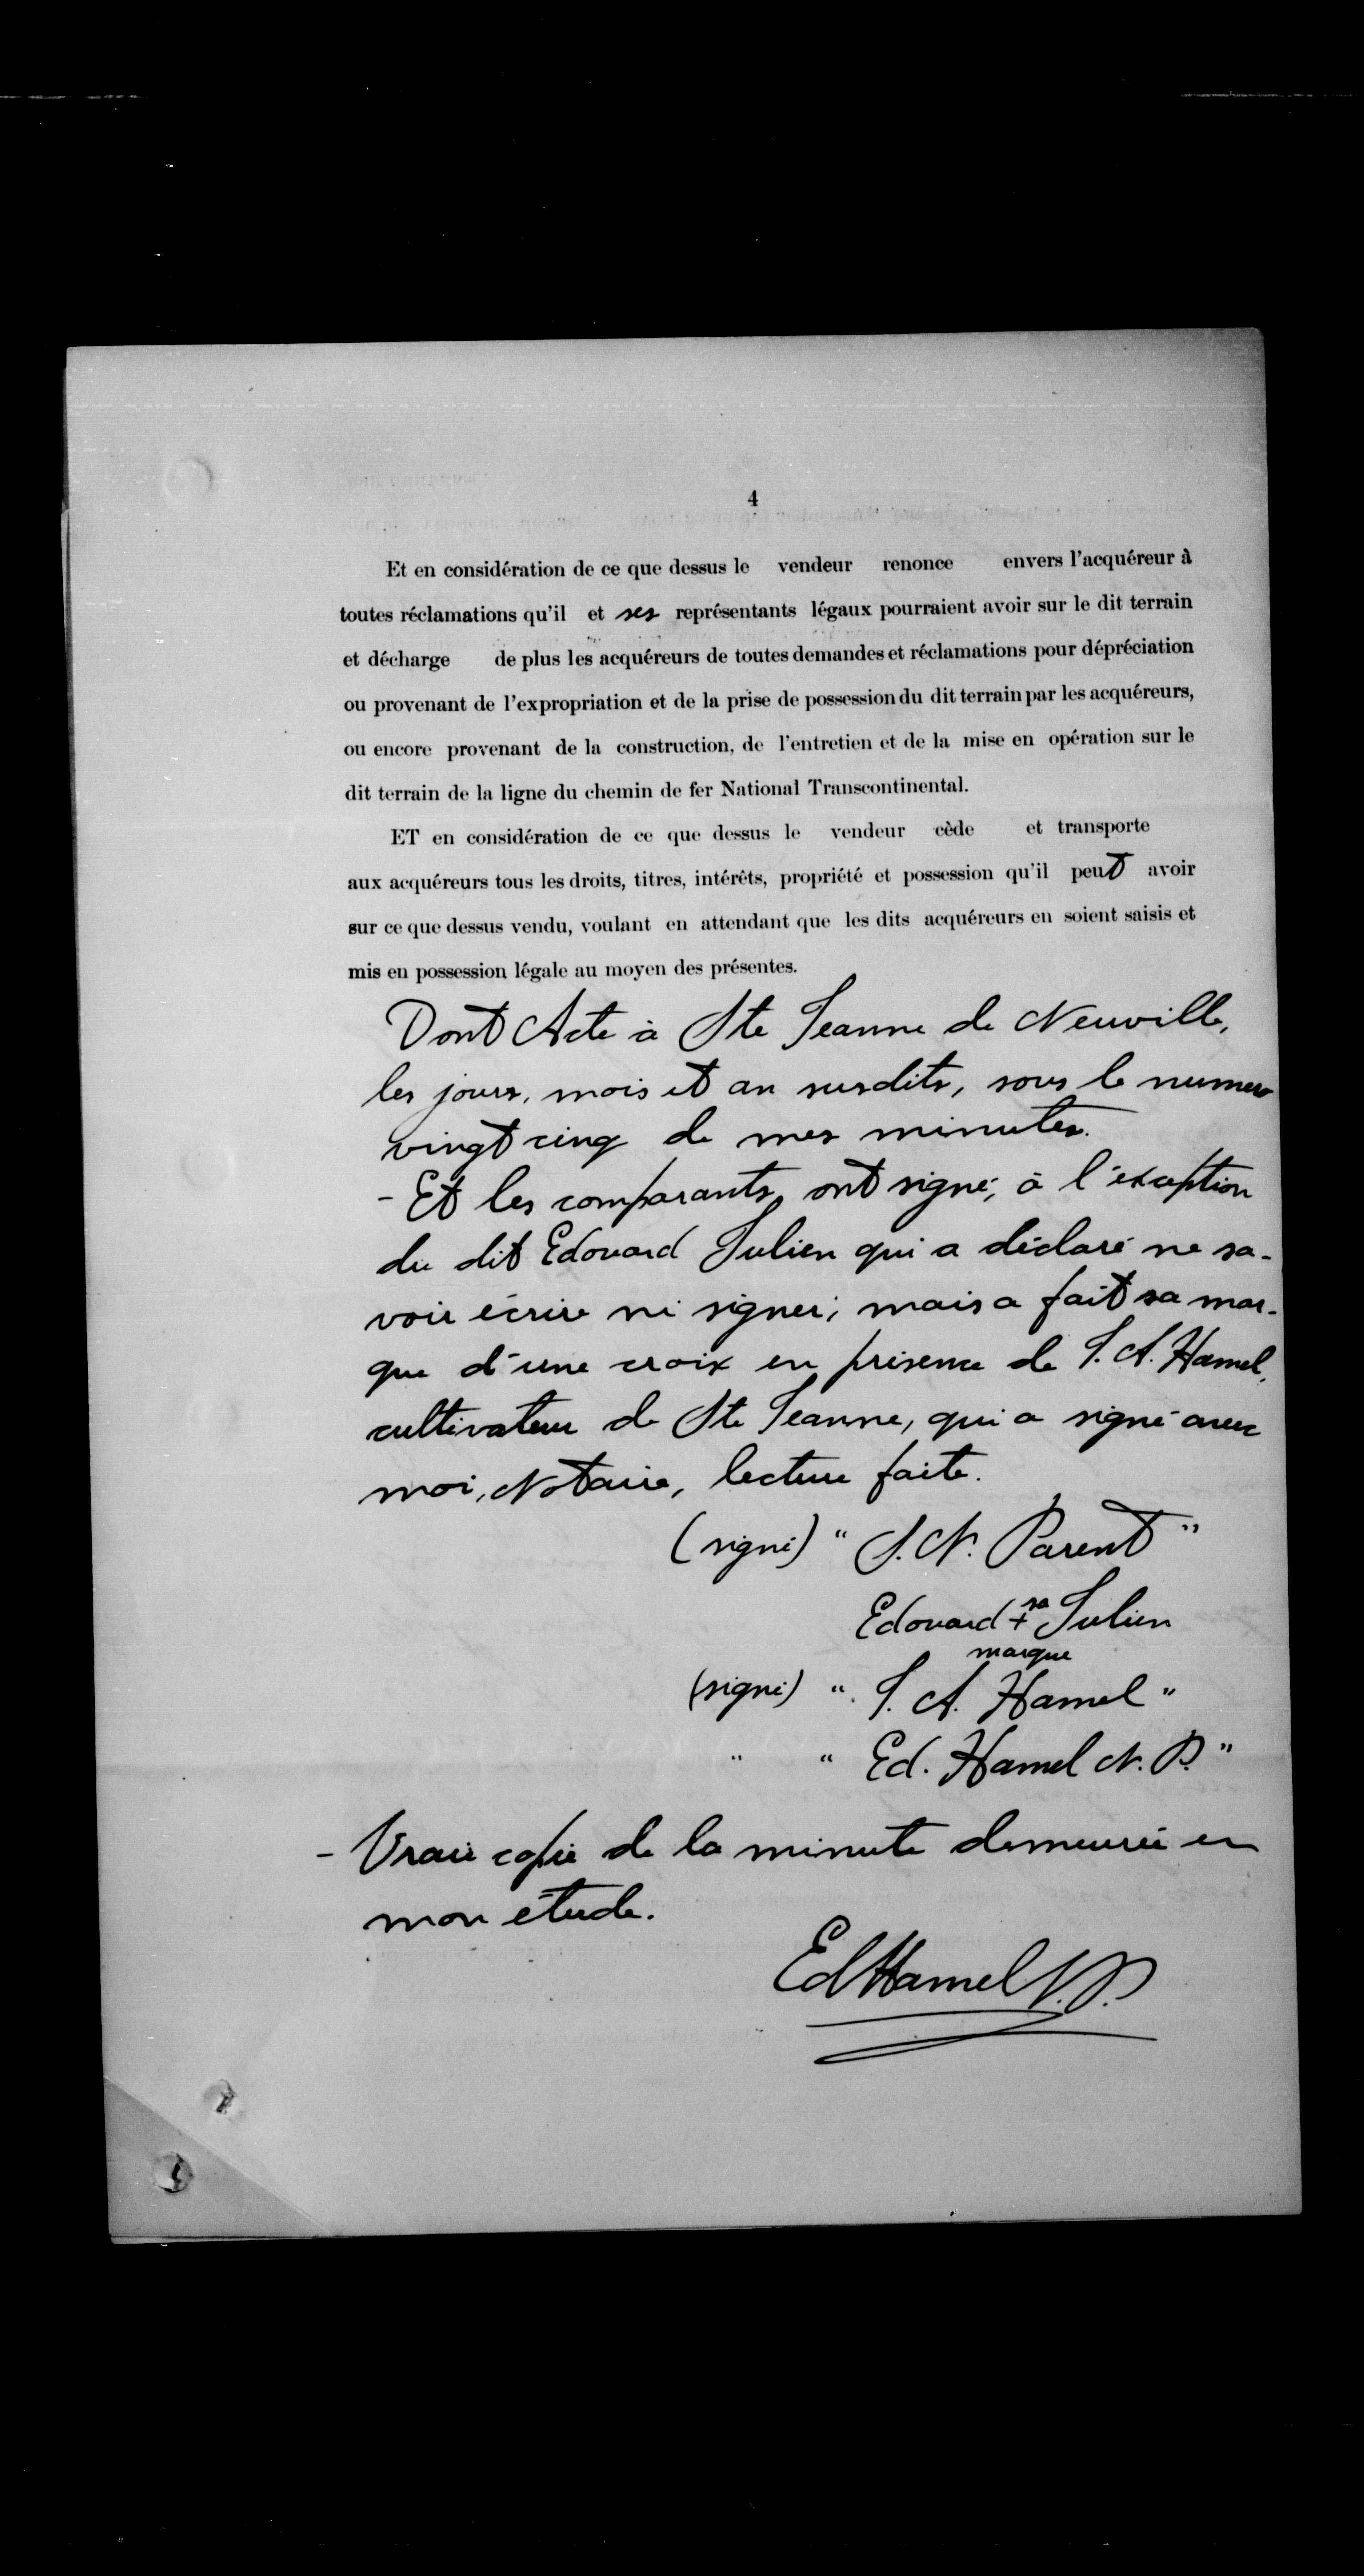 4
Et en considération de ce que dessus le vendeur renonce envers l'acquéreur à
toutes réclamations qu'il et ses représentants légaux pourraient avoir sur le dit terrain
et décharge de plus les acquéreurs de toutes demandes et réclamations pour dépréciation
ou provenant de l'expropriation et de la prise de possession du dit terrain par les acquéreurs,
ou encore provenant de la construction, de l'entretien et de la mise en opération sur le
dit terrain de la ligne du chemin de fer National Transcontinental.
ET en considération de ce que dessus le vendeur cède et transporte
aux acquéreurs tous les droits, titres, intérêts, propriété et possession qu'il peut avoir
sur ce que dessus vendu, voulant en attendant que les dits acquéreurs en soient saisis et
mis en possession légale au moyen des présentes.
Dont Acte à Ste Jeanne de Neuville,
les jours, mois et an susdits, sous le numero
vingt cinq de mes minutes.
- Et les comparants, ont signé, à l'éxception
du dit Edouard Julien qui a déclaré ne sa-
voir écrire ni signer; mais a fait sa mar-
que d'une croix en présence de J. A. Hamel,
cultivateur de Ste Jeanne, qui a signé avec
moi, Notaire, lecture faite.
(signé) " S. N. Parent "
Edouard + sa Julien
marque
(signé) " J. A. Hamel "
" " Ed. Hamel N. P. "
- Vraie copie de la minute demeurée en
mon étude.
Ed Hamel N.P.